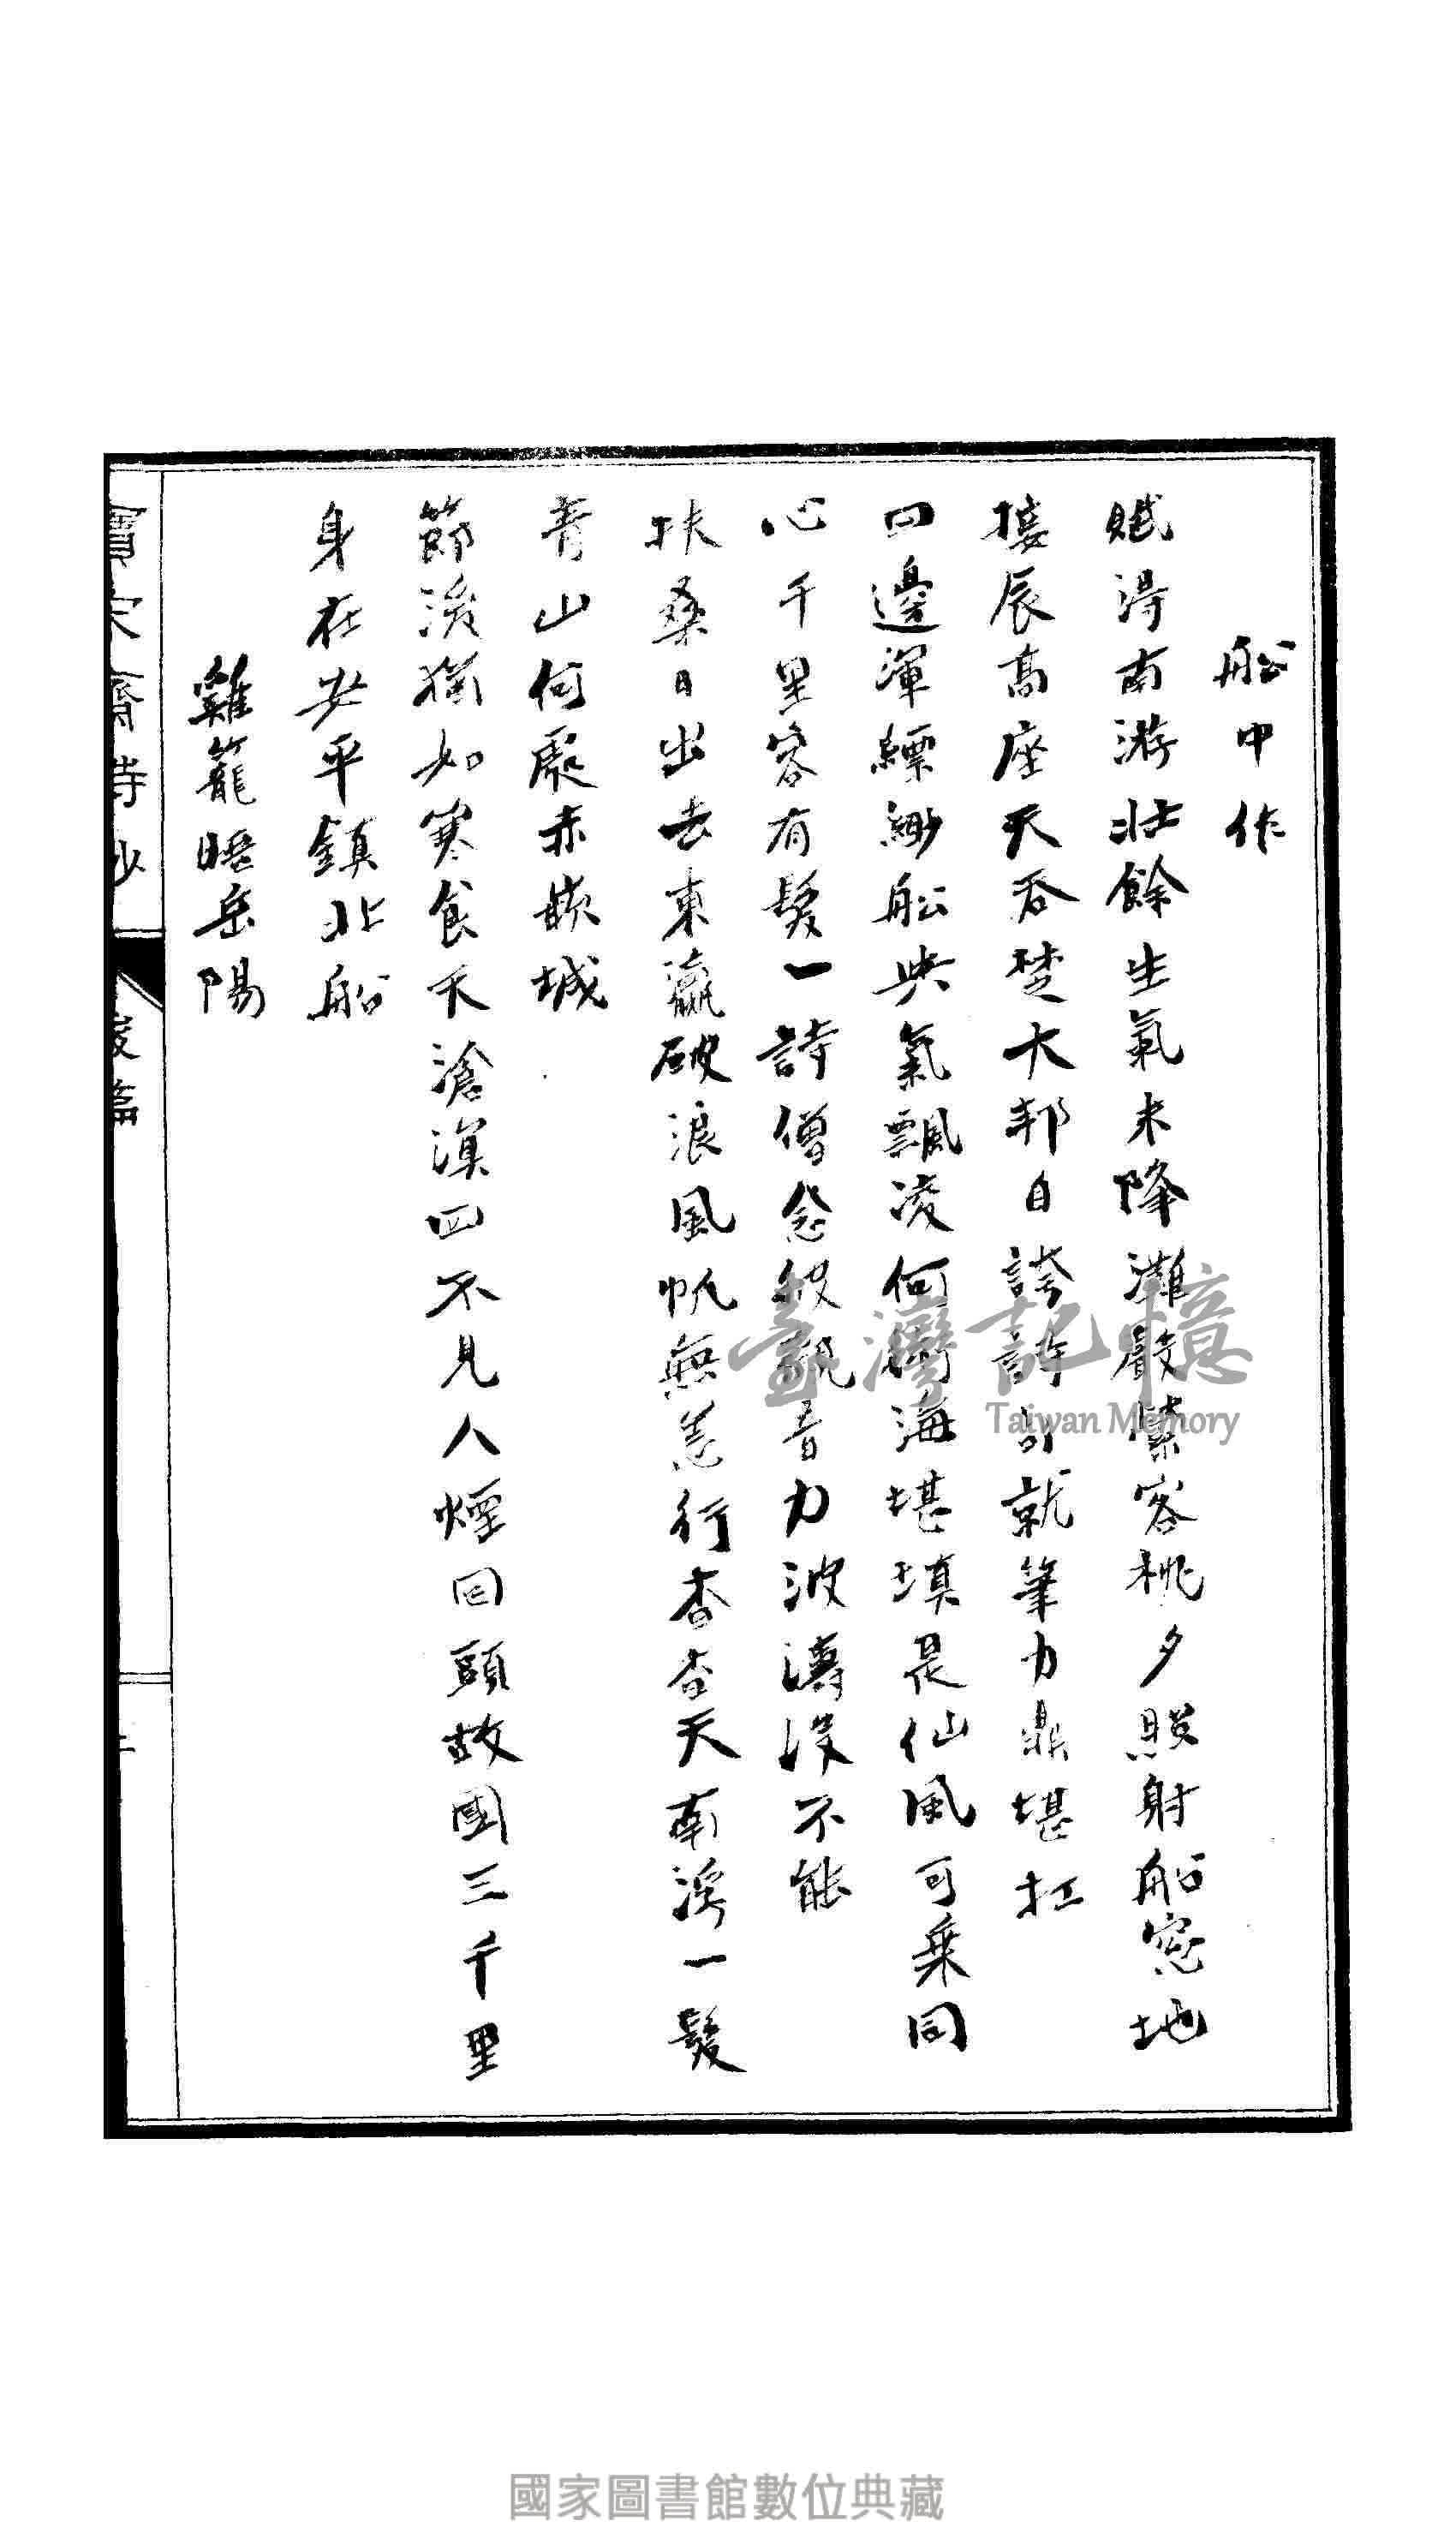 船中作
賦得南游壯餘生氣未降灘聲縈客桃夕照射船窓地
接辰高座天吞楚大邦自誇詩就筆力鼎堪扛
四邊渾縹緲船與氣飄凌何海堪填畏仙風可乗同
心千里客有髮一詩僧念彼觀音力波濤沒不能
扶桑日出去東瀛破浪風帆無恙行杳杳天南深一髮
青山何處赤嵌城
節後猶如寒食天滄溟四不見人煙回頭故國三千里
身在安平鎮北船
雞籠晤岳陽
寶宋齋詩鈔
臺灣記憶
Taiwan Memory
國家圖書館數位典藏